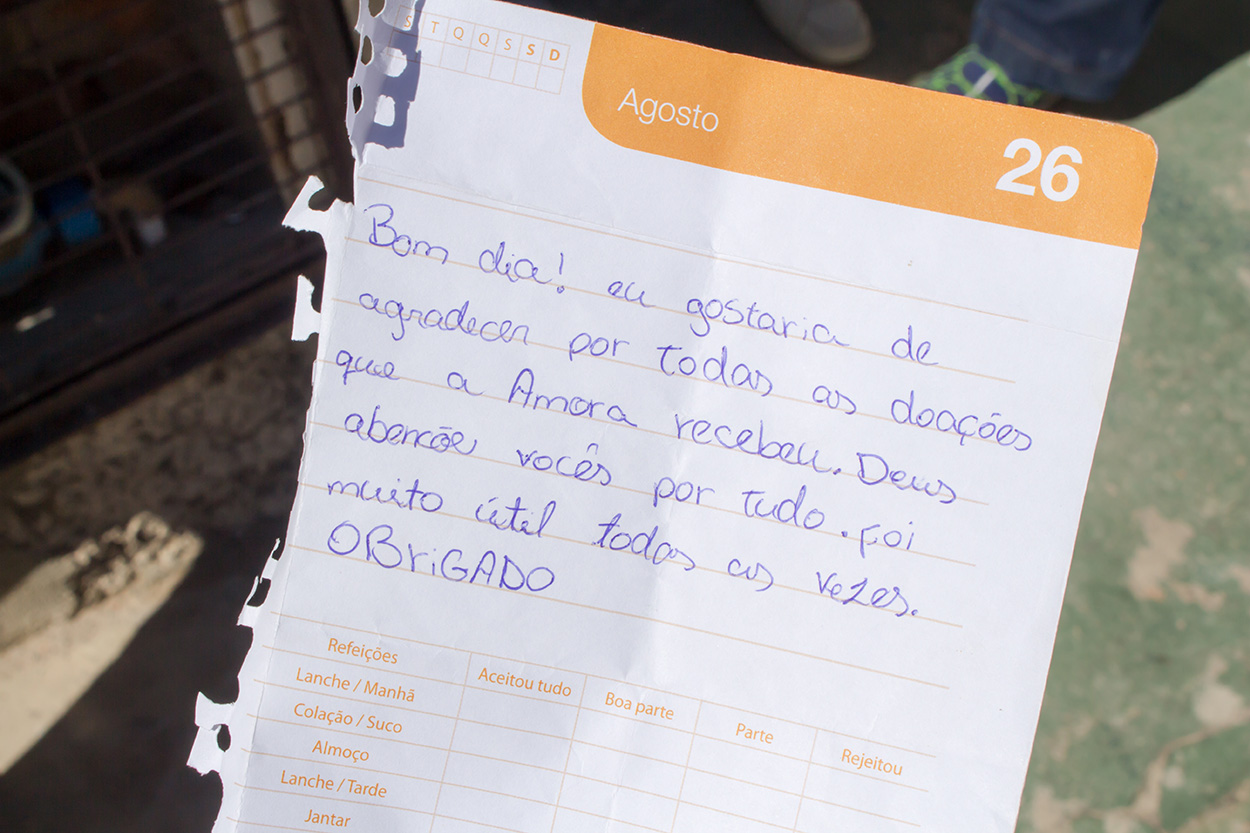 S T Q Q S S D
Agosto
26
Bom dia! eu gostaria de
agradecer por todas as doações
que a Amora recebeu. Deus
abencõe vocês por tudo. foi
muito útil todas as vezes.
OBRiGADO
Refeições Aceitou tudo Boa parte Parte Rejeitou
Lanche / Manhã
Colação / Suco
Almoço
Lanche / Tarde
Jantar